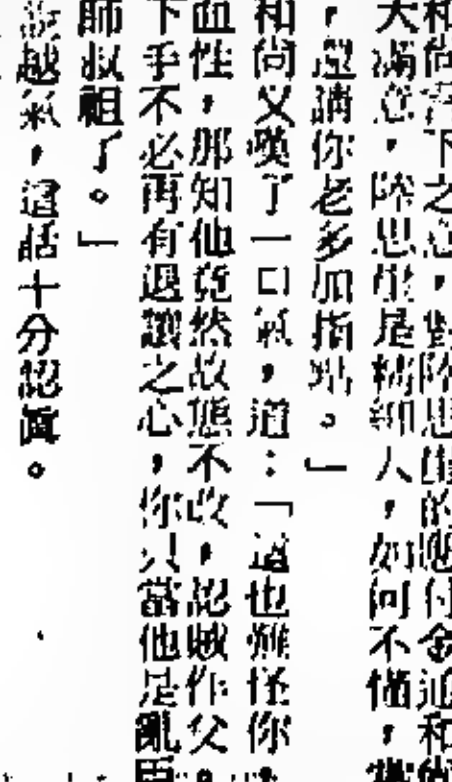 和尚言下之意，對陸思崖的應付金通和尚
大滿意，陸思崖是精細人，如何不懂，
，還請你老多加指點。」
和尚又嘆了一口氣，道：「這也難怪你，
血性，那知他竟然故態不改，認賊作父，
下手不必再有退讓之心，你只當他是亂臣
師叔祖了。」
越氣，這話十分認真。